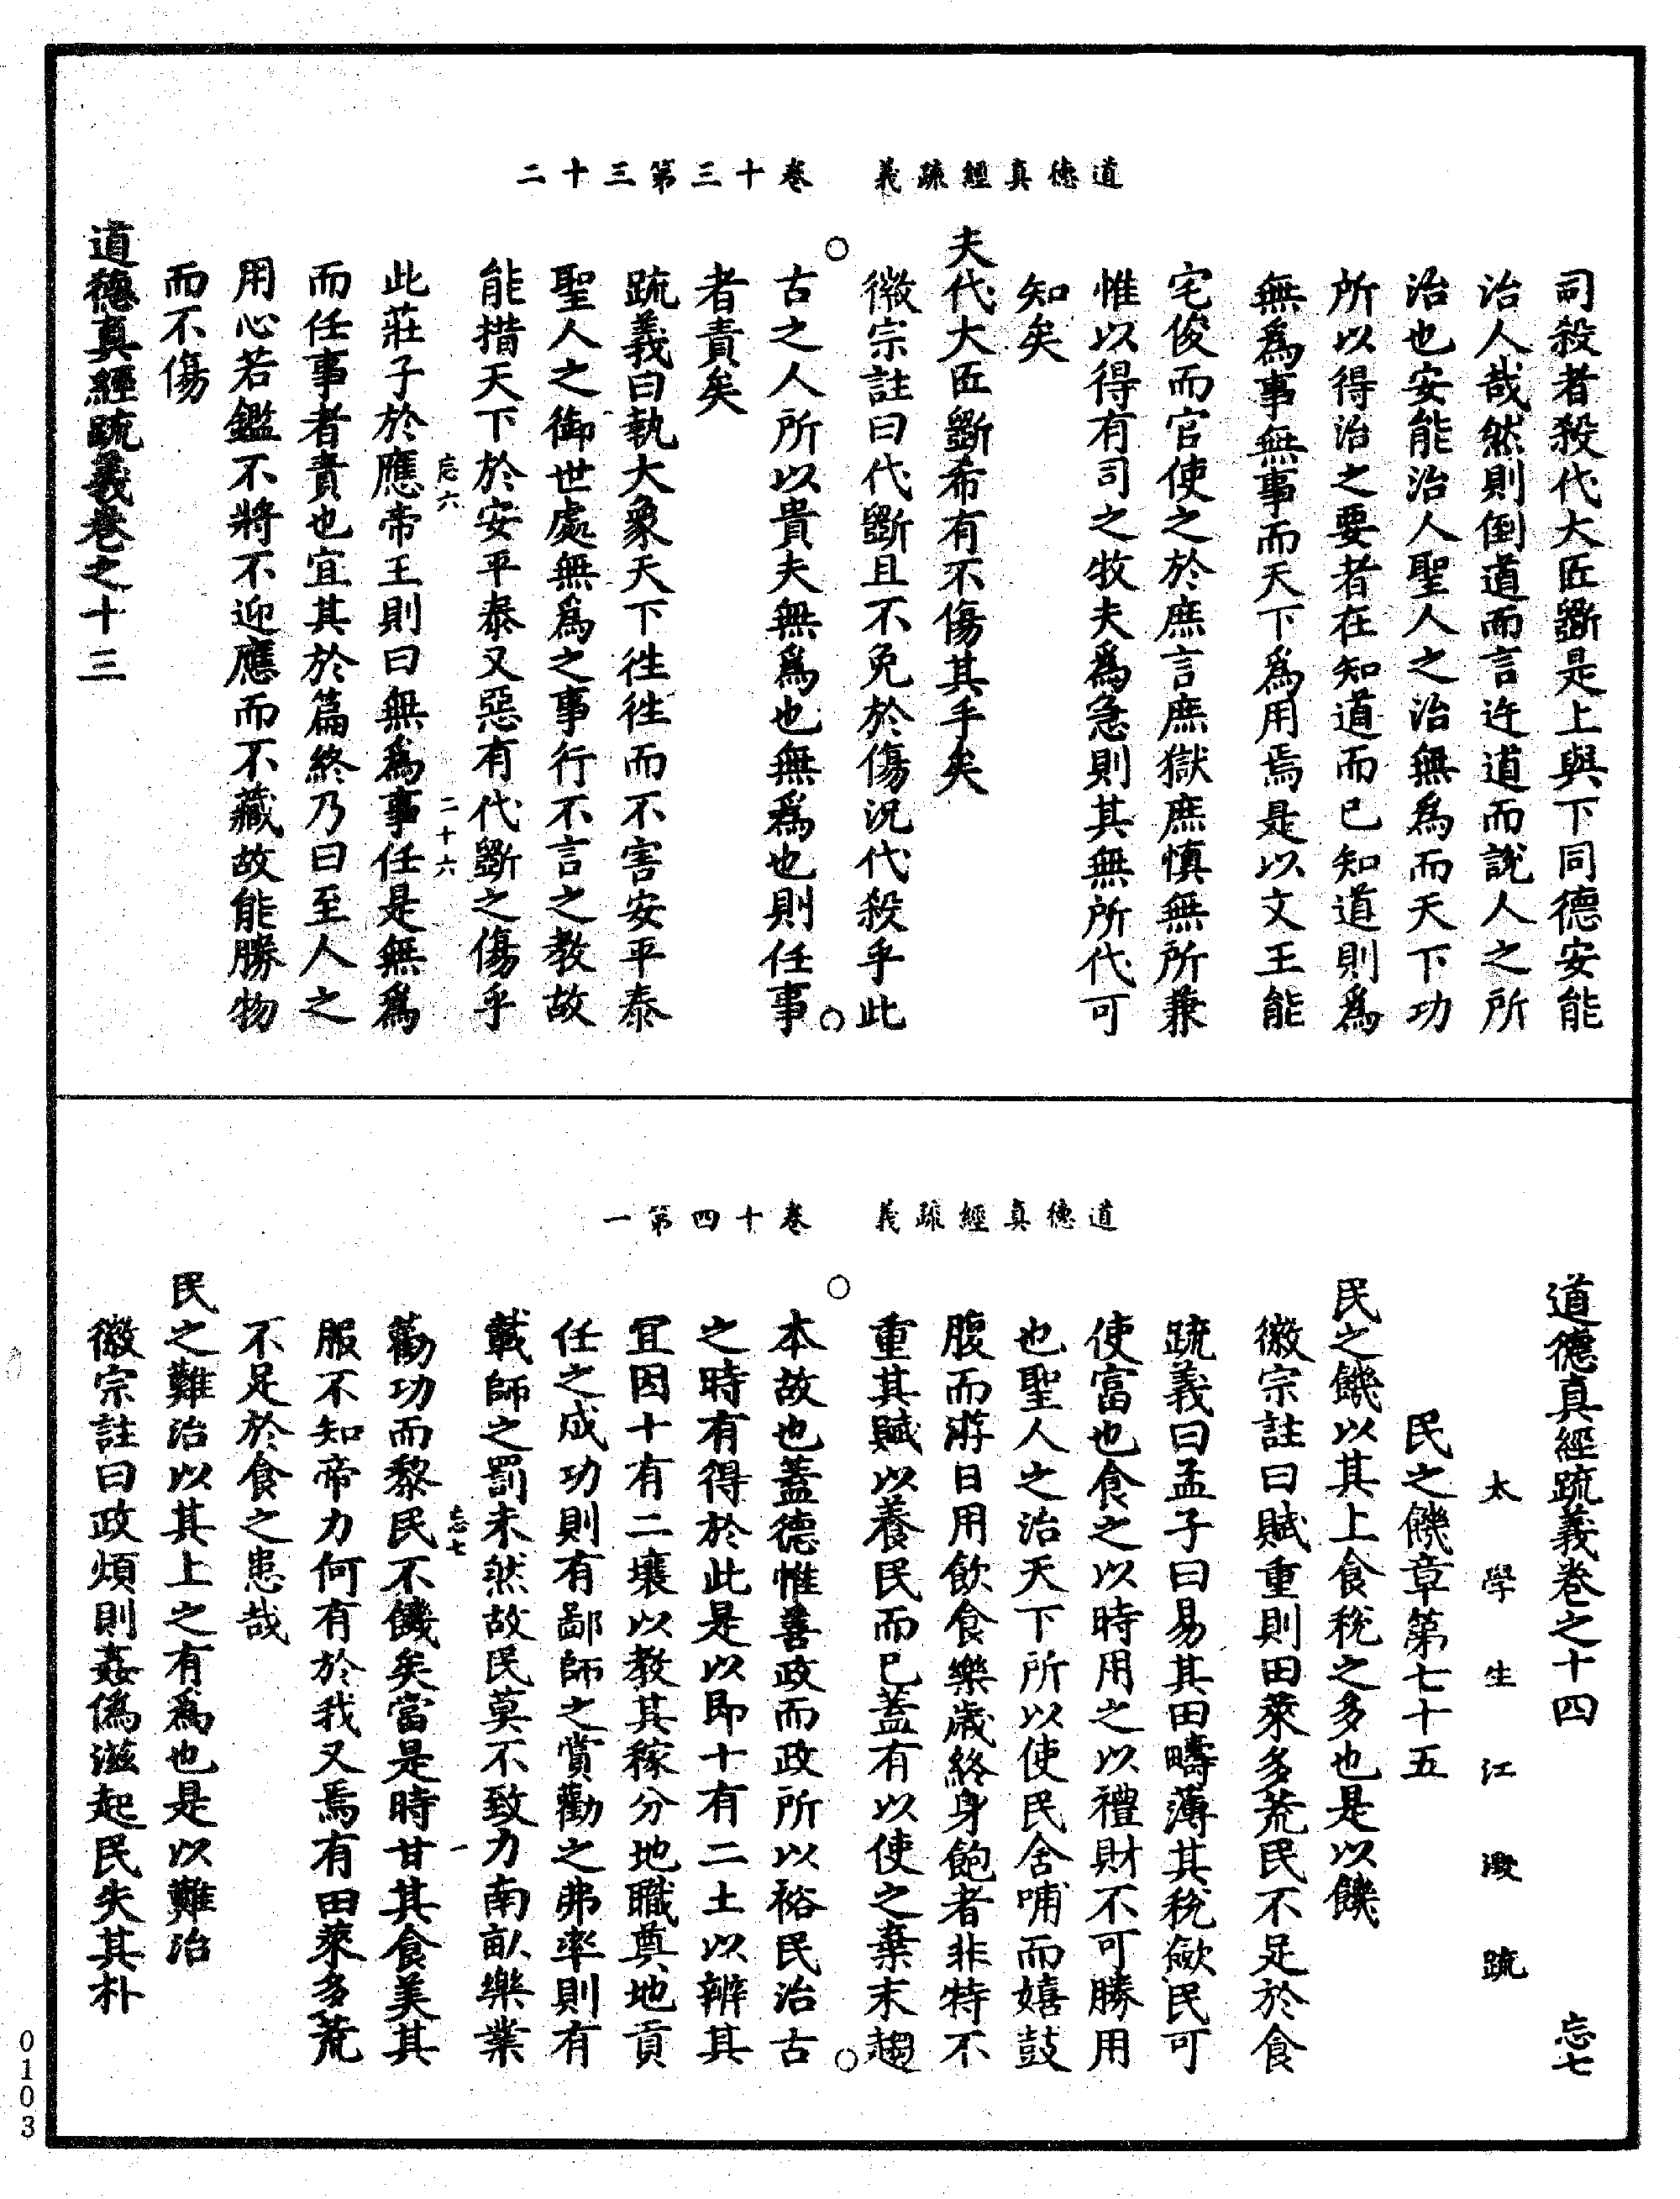 道德真經疏義　卷十三第三十二
司殺者殺代大匠斲是上與下同德安能
治人哉然則倒道而言迕道而說人之所
治也安能治人聖人之治無爲而天下功
所以得治之要者在知道而已知道則爲
無爲事無事而天下爲用焉是以文王能
宅俊而官使之於庶言庶獄庶慎無所兼
惟以得有司之牧夫爲急則其無所代可
知矣
夫代大匠斲希有不傷其手矣
徽宗註曰代斲且不免於傷況代殺乎此
古之人所以貴夫無爲也無爲也則任事
者責矣
疏義曰執大象天下往往而不害安平泰
聖人之御世處無爲之事行不言之教故
能措天下於安平泰又惡有代斲之傷乎
忘六　二十六
此莊子於應帝王則曰無爲事任是無爲
而任事者責也宜其於篇終乃曰至人之
用心若鑑不將不迎應而不藏故能勝物
而不傷
道德真經疏義卷之十三
道德真經疏義　卷十四第一
道德真經疏義卷之十四　忘七
太學生江澂疏
民之饑章第七十五
民之饑以其上食稅之多也是以饑
徽宗註曰賦重則田萊多荒民不足於食
疏義曰孟子曰易其田疇薄其稅斂民可
使富也食之以時用之以禮財不可勝用
也聖人之治天下所以使民含哺而嬉鼓
腹而游日用飲食樂歲終身飽者非特不
重其賦以養民而已蓋有以使之棄末趨
本故也蓋德惟善政而政所以裕民治古
之時有得於此是以即十有二土以辨其
宜因十有二壤以教其稼分地職奠地貢
任之成功則有鄙師之賞勸之弗率則有
載師之罰未然故民莫不致力南畝樂業
忘七　一
勸功而黎民不饑矣當是時甘其食美其
服不知帝力何有於我又焉有田萊多荒
不足於食之患哉
民之難治以其上之有爲也是以難治
徽宗註曰政煩則姦僞滋起民失其朴
0103